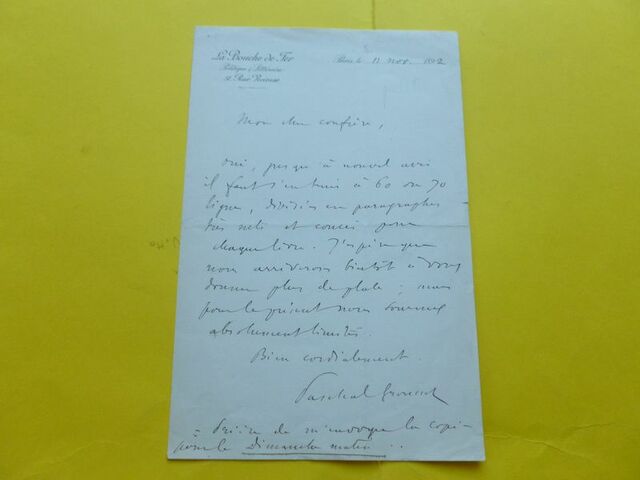 La Bouche de Fer
Politique & Littéraire
Paris, le 11 nov. 1892
Mon cher confrère,
oui, jusqu'à nouvel avis
il faut s'en tenir à 60 ou 70
lignes, divisées en paragraphes
très nets et concis pour
chaque livre. J'espère que
nous arriverons bientôt à vous
donner plus de place ; mais
pour le présent nous sommes
absolument limités.
Bien cordialement.
Paschal Grousset
= Prière de m'envoyer la copie
pour le Dimanche matin ..